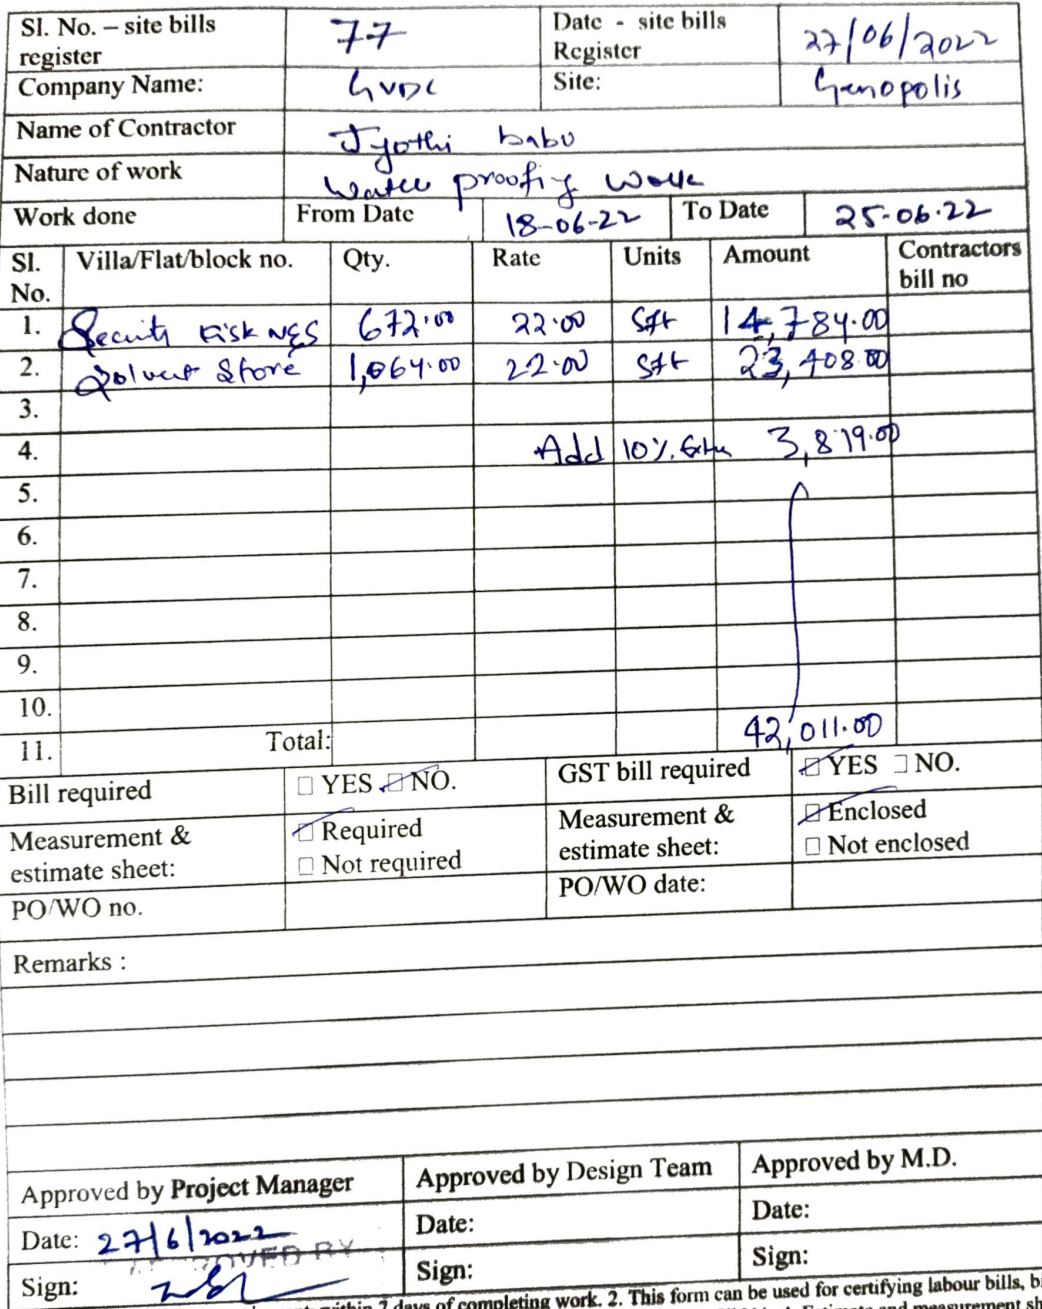 Sl. No. – site bills register 77 Date - site bills Register 27/06/2022
Company Name: GVDC Site: Genopolis
Name of Contractor Jyothi babu
Nature of work Water proofing work
Work done From Date 18-06-22 To Date 25-06-22
Sl. No. Villa/Flat/block no. Qty. Rate Units Amount Contractors bill no
1. Security Kisk 672.00 22.00 Sft 14,784.00
2. Solvent Store 1,064.00 22.00 Sft 23,408.00
3.
4. Add 10% Extra 3,819.00
5.
6.
7.
8.
9.
10.
11. Total: 42,011.00
Bill required ☐ YES ☑ NO. GST bill required ☑ YES ☐ NO.
Measurement & estimate sheet: ☑ Required ☐ Not required Measurement & estimate sheet: ☑ Enclosed ☐ Not enclosed
PO/WO no. PO/WO date:
Remarks :
Approved by Project Manager Approved by Design Team Approved by M.D.
Date: 27/6/2022 Date: Date:
Sign: Sign: Sign:
within 7 days of completing work. 2. This form can be used for certifying labour bills,